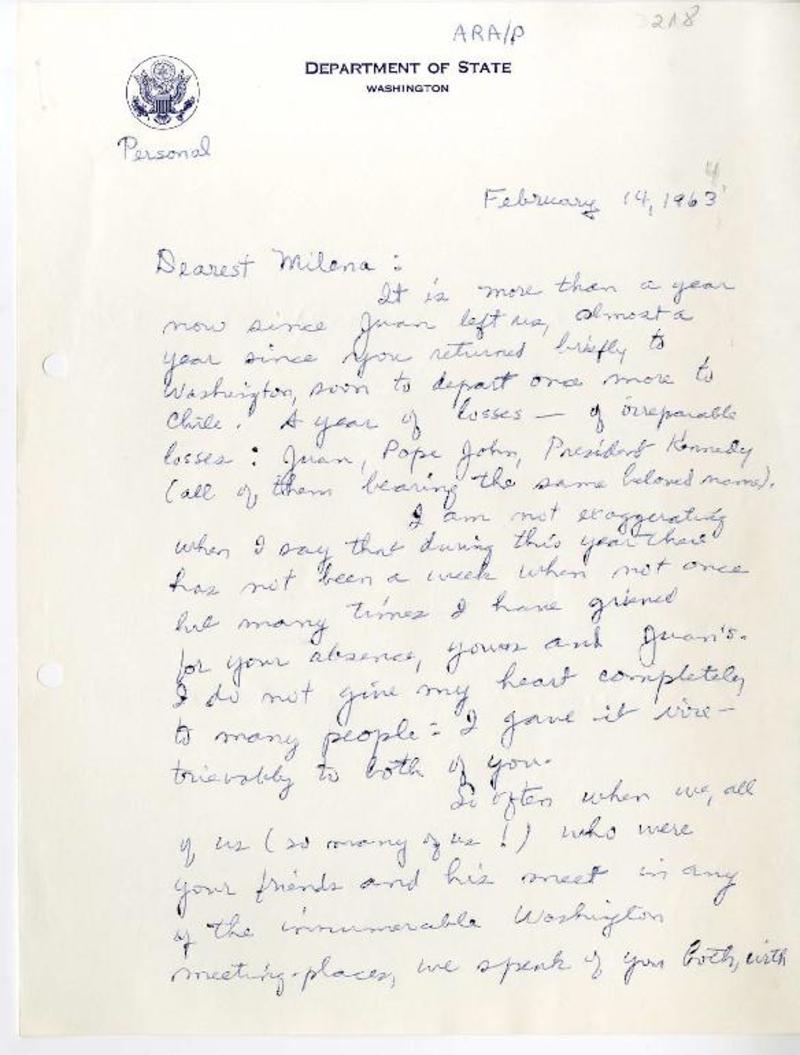 ARA/P
3218
DEPARTMENT OF STATE
WASHINGTON
Personal
4
February 14, 1963
Dearest Milena :
It is more than a year
now since Juan left us, almost a
year since you returned briefly to
Washington, soon to depart once more to
Chile. A year of losses — of irreparable
losses : Juan, Pope John, President Kennedy
(all of them bearing the same beloved name).
I am not exaggerating
when I say that during this year there
has not been a week when not once
but many times I have grieved
for your absence, yours and Juan's.
I do not give my heart completely
to many people : I gave it irre-
trievably to both of you.
So often when we, all
of us (so many of us !) who were
your friends and his meet in any
of the innumerable Washington
meeting-places, we speak of you both, with